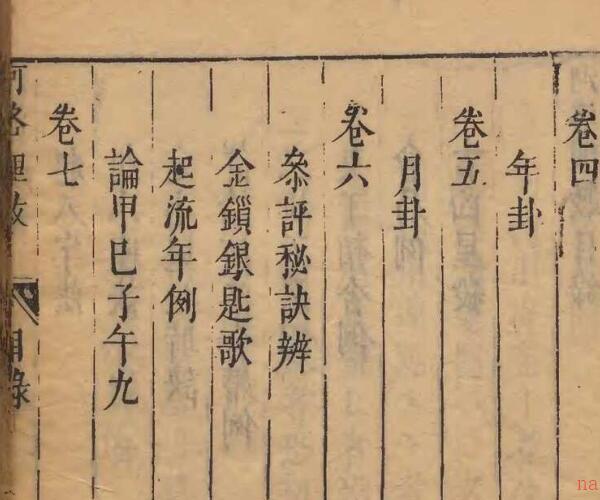 卷四
年卦
卷五
月卦
卷六
叅評秘訣辨
金鎖銀匙歌
起流年例
論甲巳子午九
卷七
目錄
na